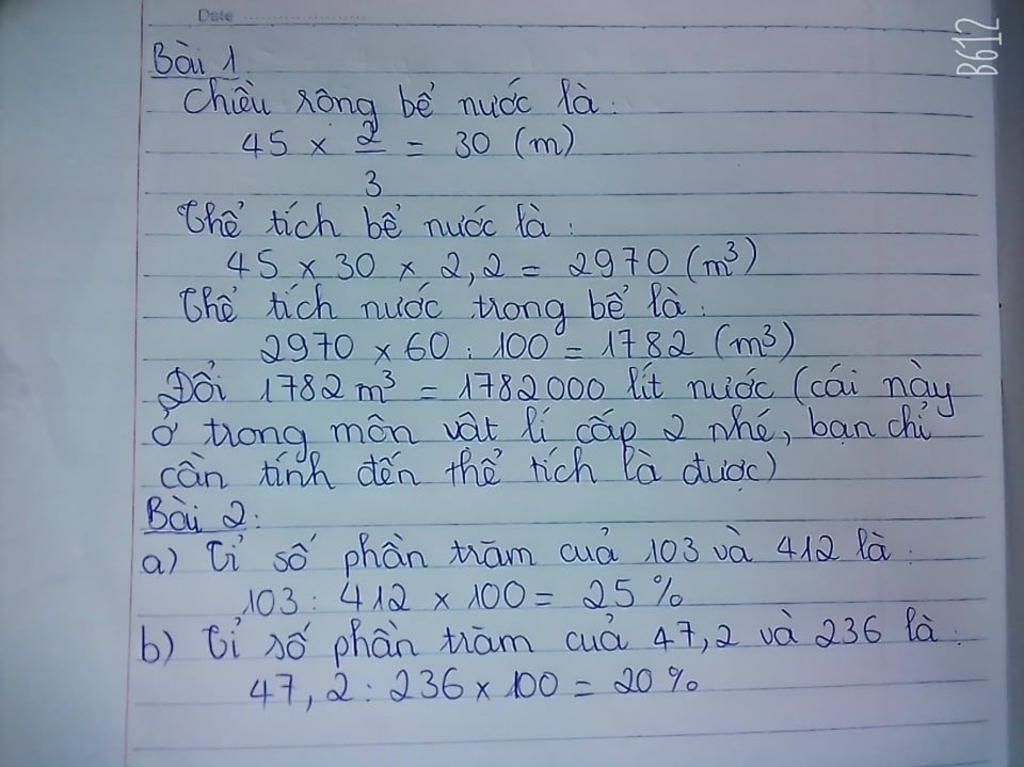 Date
B612
Bài 1
Chiều rông bể nước là:
45 × 2/3 = 30 (m)
Thể tích bể nước là:
45 × 30 × 2,2 = 2970 (m³)
Thể tích nước trong bể là:
2970 × 60 : 100 = 1782 (m³)
Đổi 1782 m³ = 1782000 lít nước (cái này
ở trong môn vât lí cấp 2 nhé, bạn chỉ
cần tính đến thể tích là được)
Bài 2:
a) Tỉ số phần trăm cuả 103 và 412 là:
103 : 412 × 100 = 25 %
b) Tỉ số phần trăm cuả 47,2 và 236 là:
47,2 : 236 × 100 = 20 %